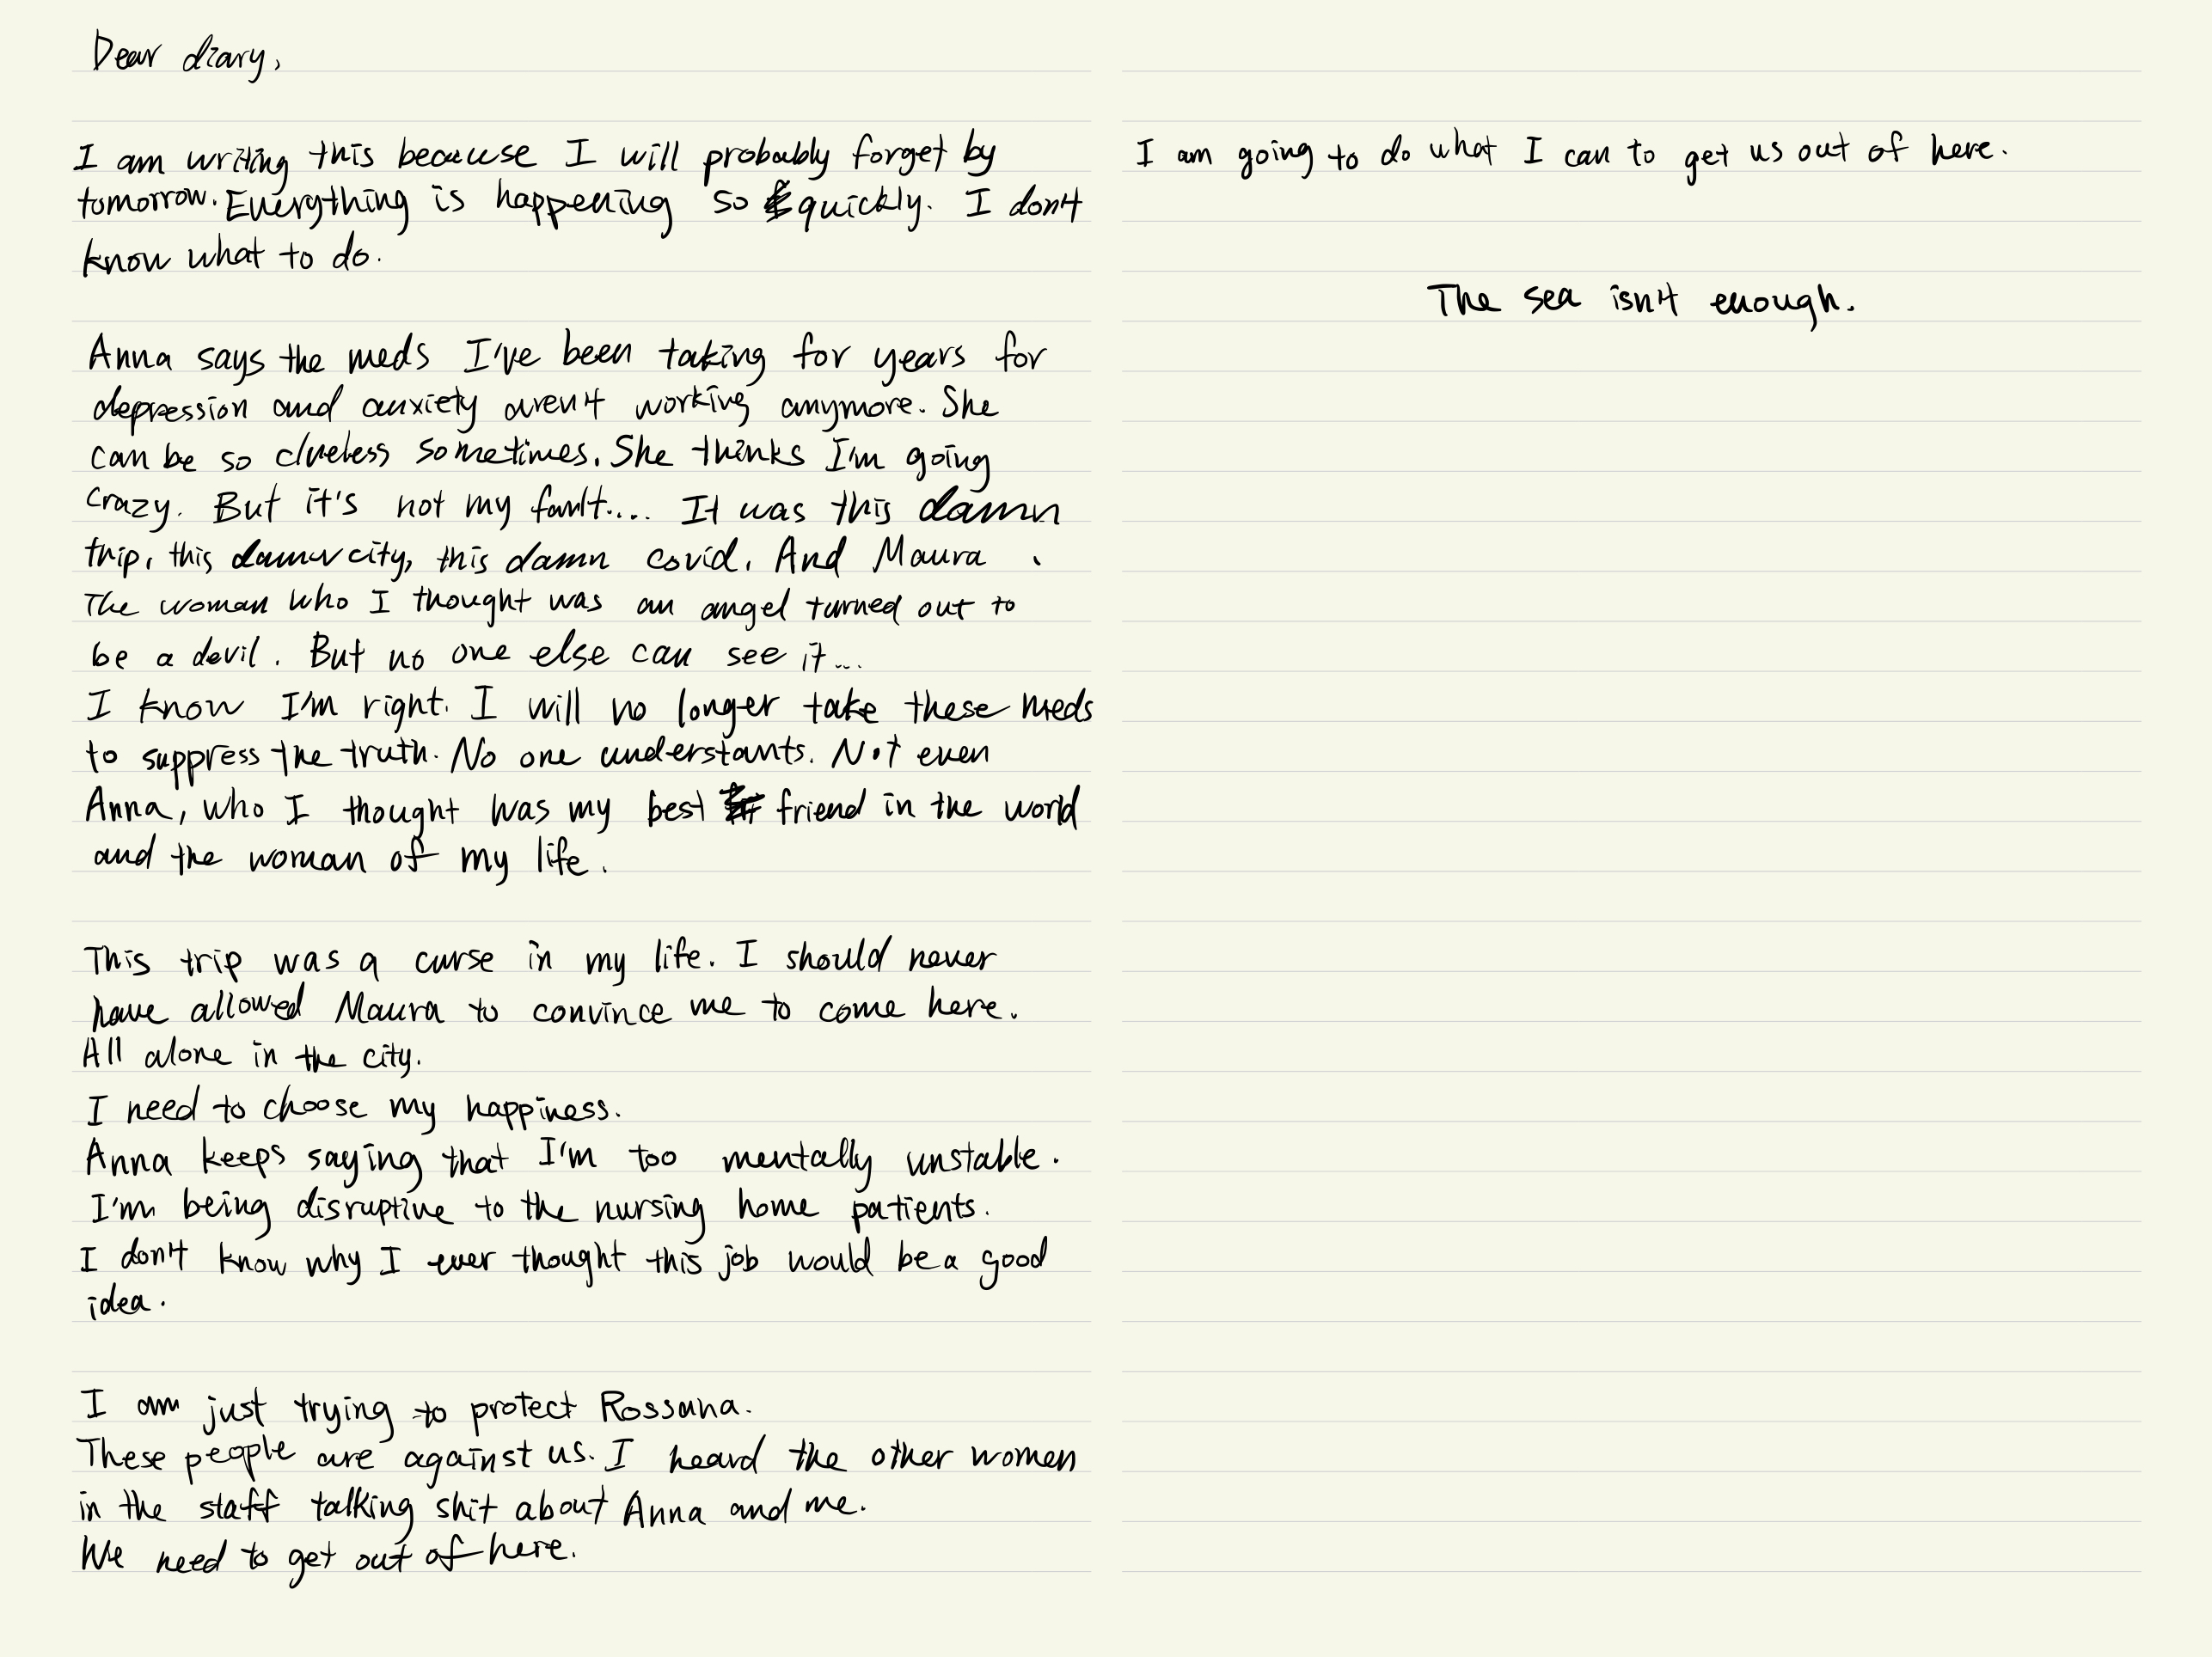 Dear diary,
I am writing this because I will probably forget by
tomorrow. Everything is happening so quickly. I don't
know what to do.
Anna says the meds I've been taking for years for
depression and anxiety aren't working anymore. She
can be so clueless sometimes. She thinks I'm going
crazy. But it's not my fault.... It was this damn
trip, this damn city, this damn covid. And Maura.
The woman who I thought was an angel turned out to
be a devil. But no one else can see it...
I know I'm right. I will no longer take these meds
to suppress the truth. No one understants. Not even
Anna, who I thought was my best friend in the world
and the woman of my life.
This trip was a curse in my life. I should never
have allowed Maura to convince me to come here.
All alone in the city.
I need to choose my happiness.
Anna keeps saying that I'm too mentally unstable.
I'm being disruptive to the nursing home patients.
I don't know why I ever thought this job would be a good
idea.
I am just trying to protect Rossana.
These people are against us. I heard the other women
in the staff talking shit about Anna and me.
We need to get out of here.
I am going to do what I can to get us out of here.
The sea isn't enough.